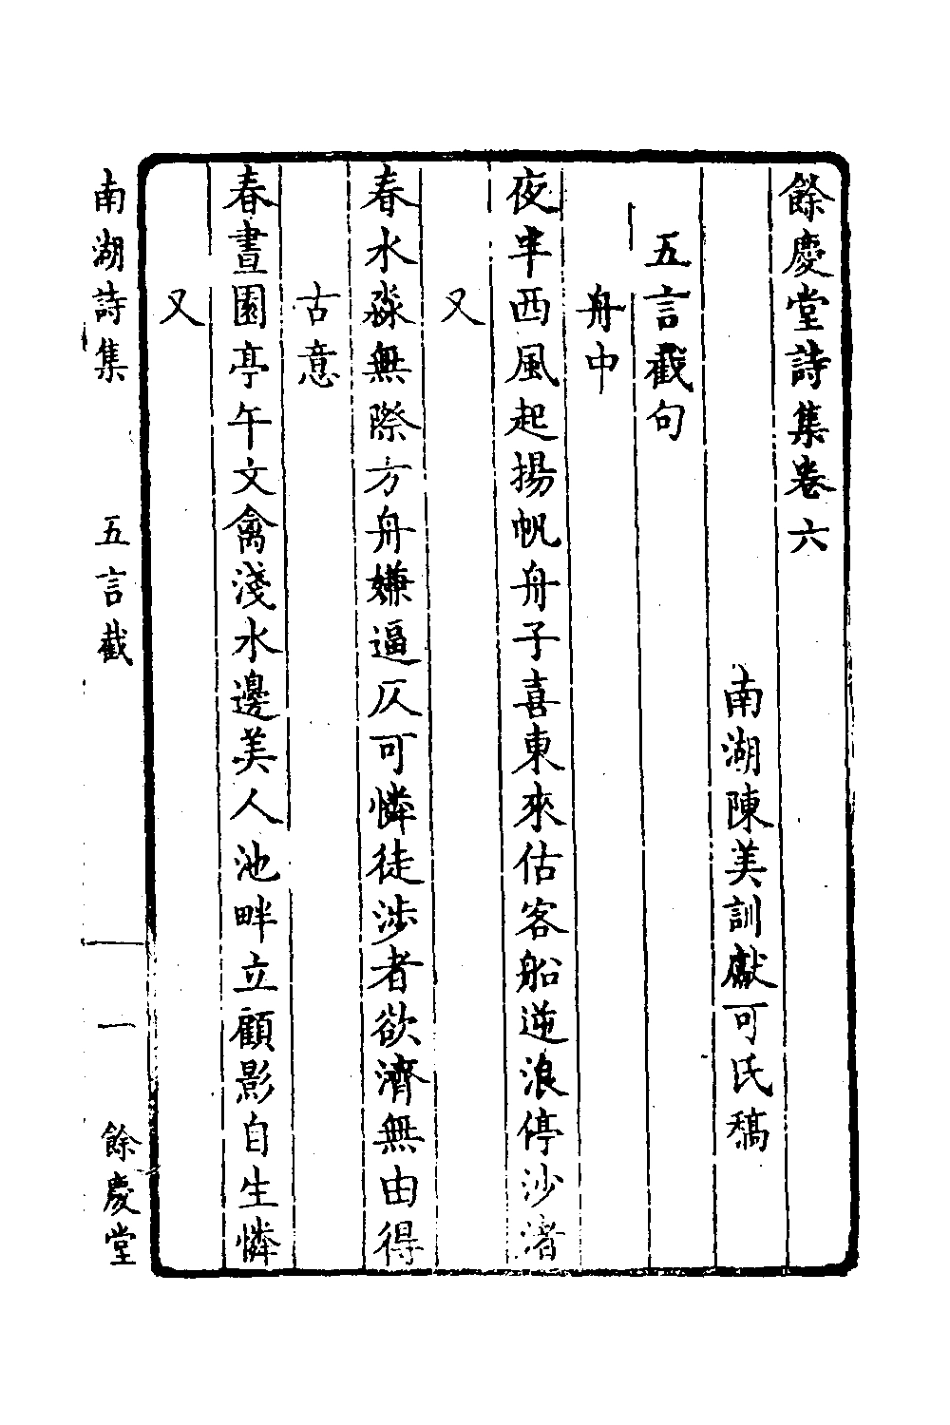 餘慶堂詩集卷六
南湖陳美訓獻可氏稿
五言截句
舟中
夜半西風起揚帆舟子喜東來估客船逆浪停沙渚
又
春水淼無際方舟嫌逼仄可憐徒涉者欲濟無由得
古意
春晝園亭午文禽淺水邊美人池畔立顧影自生憐
又
南湖詩集 五言截 一 餘慶堂